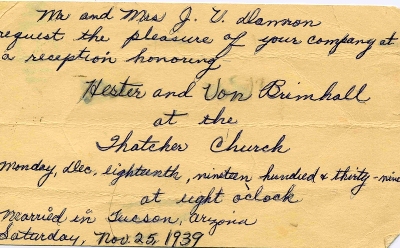 Mr and Mrs J. V. Damron
request the pleasure of your company at
a reception honoring
Hester and Von Brimhall
at the
Thatcher Church
Monday, Dec, eighteenth, nineteen hundred & thirty-nine
at eight o'clock
Married in Tucson, Arizona
Saturday, Nov. 25, 1939